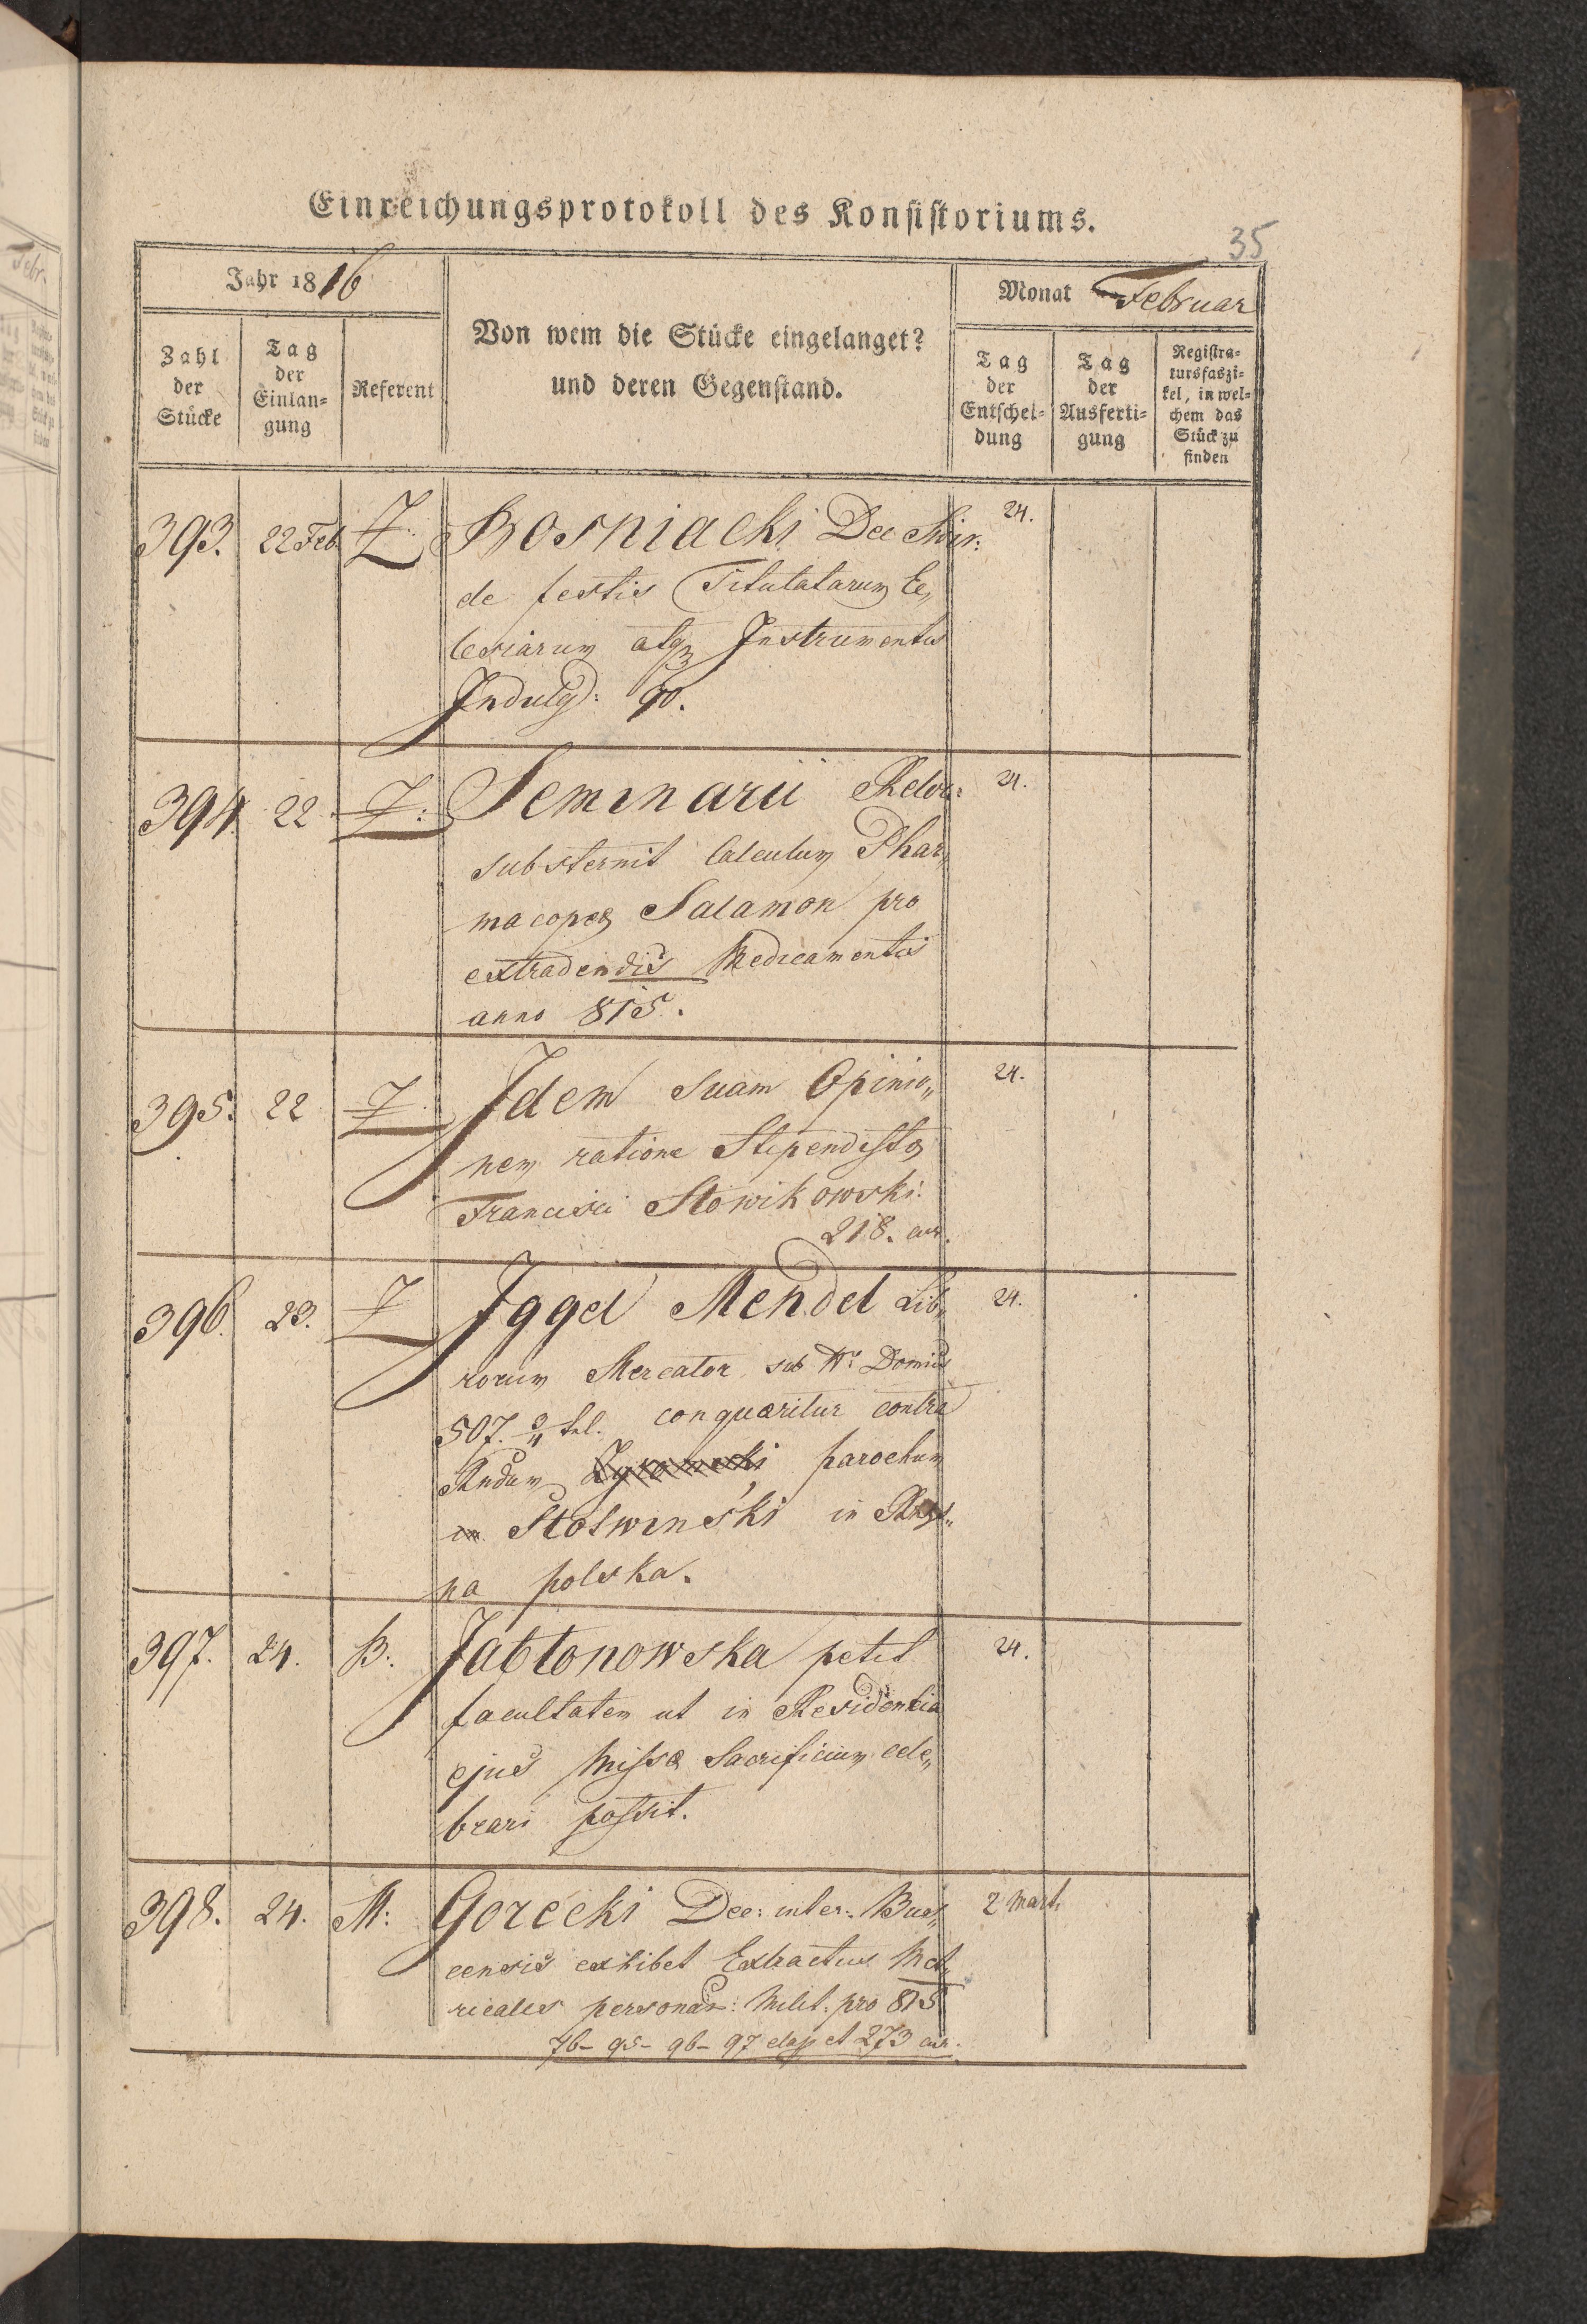 Einreichungsprotokoll des Konsistoriums.
35
Jahr 1816
Monat Februar
Zahl der Stücke
Tag der Einlan=gung
Referent
Von wem die Stücke eingelanget?
und deren Gegenstand.
Tag der Entschei=dung
Tag der Ausferti=gung
Registra=tursfaszi=kel, in wel=chem das Stück zu finden
393. 22 Feb Z Bosniacki Dec 24.
de festis Titulatarum Ec„
clesiarum atqz Instrumentis
Indulg: 90.
394. 22 Z: Seminarii Retor: 24.
substernit Calculum Phar„
macopeæ Salamon pro
extradendis Medicamentis
anno 815.
395. 22 Z Idem suam Opinio„ 24.
nem ratione Stipendistæ
Francisci Słowikowski.
218. cur.
396. 23. Z Iggel Mendel Lib„ 24.
rorum Mercator sub Nr Domus
507. conquæritur contra
parochum
in Stotwinski in
na polska.
397. 24. B. Jabłonowska petit 24.
facultatem ut in Residentia
ejus Missæ Sacrificium cele„
brari possit.
398. 24. M: Gorecki Dec: inter: Bus„ 2 Mart.
censis exhibet Extractus Met„
ricales personar: Milit. pro 815
76– 95– 96– 97 elap et 273 cur.